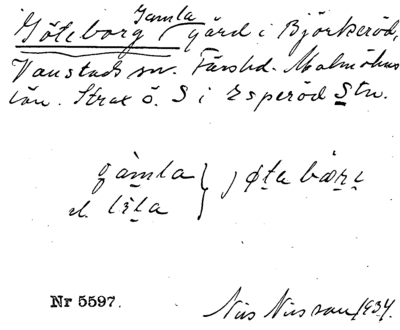 Gamla
Göteborg, gård i Björkeröd,
Vanstads sn. Färs hd. Malmöhus
län. Strax ö. S i Esperöd Stn.
gàmla } jøta bærɩ
el. lìtla
Nr 5597.
Nils Nilsson 1934.